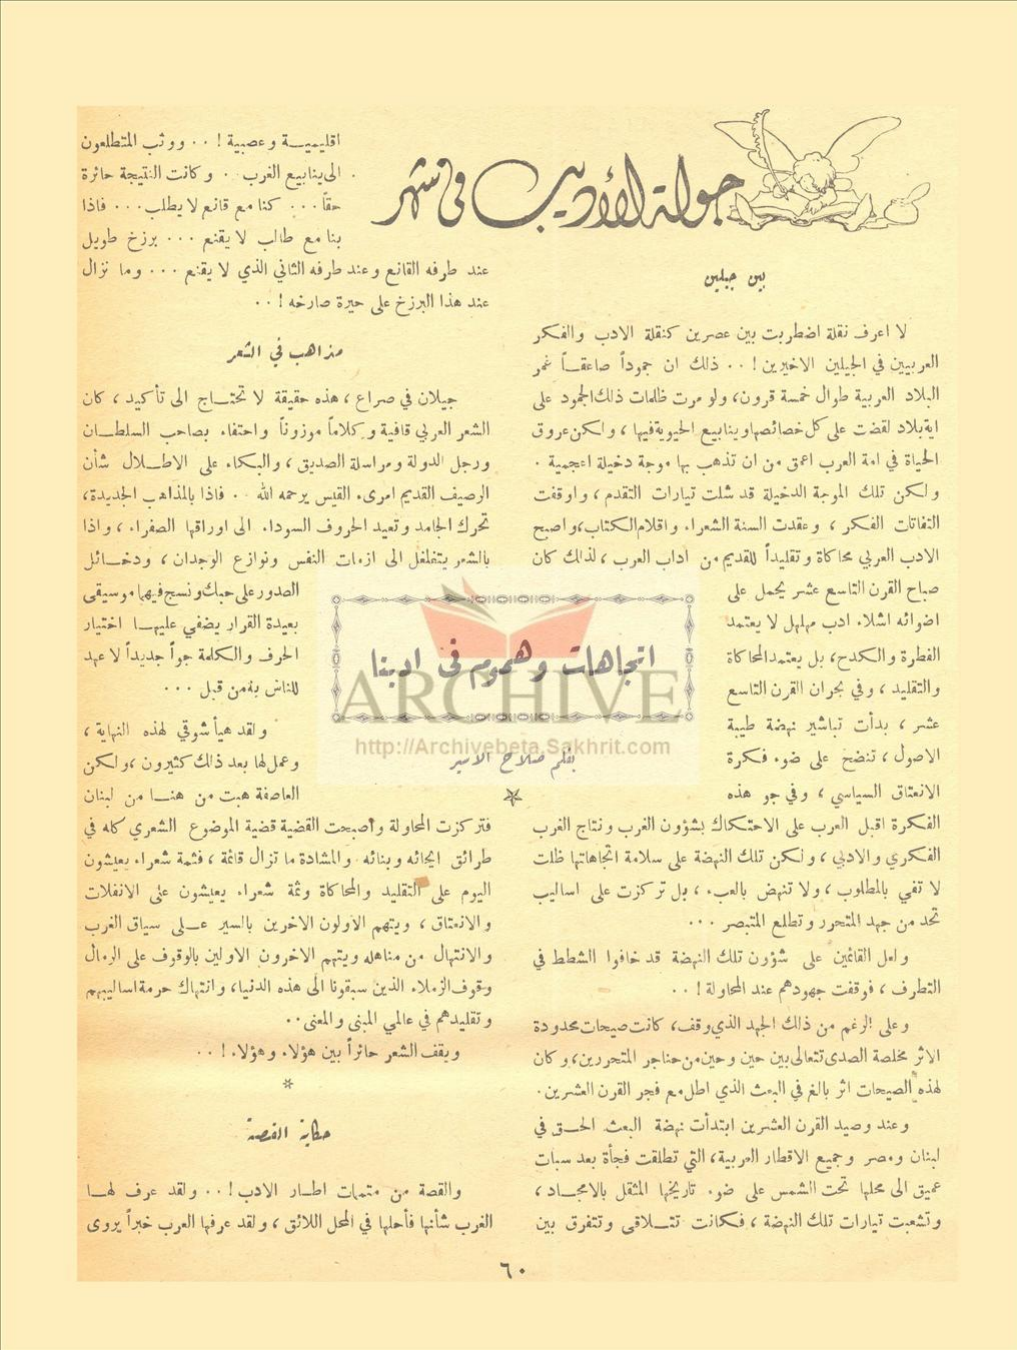 جولة الأديب في شهر
بين جيلين
لا اعرف نقلة اضطربت بين عصرين كنقلة الادب والفكر
العربيين في الجيلين الاخيرين ! . . ذلك ان جموداً صاعقاً غمر
البلاد العربية طوال خمسة قرون، ولو مرت ظلمات ذلك الجمود على
اية بلاد لقضت على كل خصائصها وينابيع الحيوية فيها ، ولكن عروق
الحياة في امة العرب اعمق من ان تذهب بها موجة دخيلة اعجمية .
ولكن تلك الموجة الدخيلة قد شلت تيارات التقدم ، واوقفت
التفاتات الفكر ، وعقدت السنة الشعراء واقلام الكتاب، واصبح
الادب العربي محاكاة وتقليداً للقديم من اداب العرب ، لذلك كان
صباح القرن التاسع عشر يحمل على
اضوائه اشلاء ادب مهلهل لا يعتمد
الفطرة والكدح، بل يعتمد المحاكاة
والتقليد ، وفي بحران القرن التاسع
عشر ، بدأت تباشير نهضة طيبة
الاصول ، تنضح على ضوء فكرة
الانعتاق السياسي ، وفي جو هذه
الفكرة اقبل العرب على الاحتكاك بشؤون الغرب ونتاج الغرب
الفكري والادبي ، ولكن تلك النهضة على سلامة اتجاهاتها ظلت
لا تفي بالمطلوب ، ولا تنهض بالعبء ، بل تركزت على اساليب
تحد من جهد المتحرر وتطلع المتبصر . . .
ولعل القائمين على شؤون تلك النهضة قد خافوا الشطط في
التطرف ، فوقفت جهودهم عند المحاولة ! . .
وعلى الرغم من ذلك الجهد الذي وقف، كانت صيحات محدودة
الاثر مخلصة الصدى تتعالى بين حين وحين من حناجر المتحررين، وكان
لهذه الصيحات اثر بالغ في البعث الذي اطل مع فجر القرن العشرين.
وعند وصيد القرن العشرين ابتدأت نهضة البعث الحق في
لبنان ومصر وجميع الاقطار العربية، التي تطلقت فجأة بعد سبات
عميق الى محلها تحت الشمس على ضوء تاريخها المثقل بالامجاد ،
وتشعبت تيارات تلك النهضة ، فكانت تتلاقى وتتفرق بين
اقليمية وعصبية ! . . ووثب المتطلعون
الى ينابيع الغرب . . وكانت النتيجة حائرة
حقاً . . . كنا مع قانع لا يطلب . . . فاذا
بنا مع طالب لا يقنع . . . برزخ طويل
عند طرفه القانع وعند طرفه الثاني الذي لا يقنع . . . وما نزال
عند هذا البرزخ على حيرة صارخه ! . .
مذاهب في الشعر
جيلان في صراع ، هذه حقيقة لا تحتاج الى تأكيد ، كان
الشعر العربي قافية وكلاماً موزوناً واحتفاء بصاحب السلطان
ورجل الدولة ومراسلة الصديق ، والبكاء على الاطلال شأن
الرصيف القديم امرىء القيس يرحمه الله . . فاذا بالمذاهب الجديدة،
تحرك الجامد وتعيد الحروف السوداء الى اوراقها الصفراء ، واذا
بالشعر يتغلغل الى ازمات النفس ونوازع الوجدان ، ودخائل
الصدور على حبك ونسج فيهما موسيقى
بعيدة القرار يضفي عليها اختيار
الحرف والكلمة جواً جديداً لا عهد
للناس به من قبل . . .
ولقد هيأ شوقي لهذه النهاية ،
وعمل لها بعد ذلك كثيرون ، ولكن
العاصفة هبت من هنا من لبنان
فتركزت المحاولة وأصبحت القضية قضية الموضوع الشعري كله في
طرائق ايحائه وبنائه والمشادة ما تزال قائمة ، فثمة شعراء يعيشون
اليوم على التقليد والمحاكاة وثمة شعراء يعيشون على الانفلات
والانعتاق ، ويتهم الاولون الاخرين بالسير على سياق الغرب
والانتهال من مناهله ويتهم الاخرون الاولين بالوقوف على الرمال
وقوف الزملاء الذين سبقونا الى هذه الدنيا، وانتهاك حرمة اساليبهم
وتقليدهم في عالمي المبنى والمعنى . .
ويقف الشعر حائراً بين هؤلاء وهؤلاء ! . .
*
حكاية القصة
والقصة من متممات اطار الادب ! . . ولقد عرف لها
الغرب شأنها فأحلها في المحل اللائق ، ولقد عرفها العرب خبراً يروى
اتجاهات وهموم في ادبنا
ARCHIVE
http://Archivebeta.Sakhrit.com
بقلم صلاح الاسير
*
٦٠